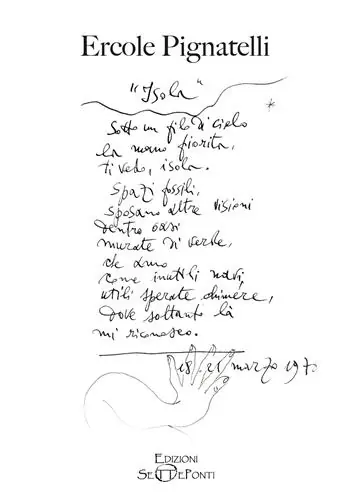 Ercole Pignatelli
"Isola"
Sotto un filo di cielo
la mano fiorita,
ti vedo, isola.
Spazi fossili,
sposano altre visioni
dentro oasi
murate di verde,
che amo
come inutili navi,
utili sperate chimere,
dove soltanto là
mi riconosco.
18.21 marzo 1970
EDIZIONI
SETTEPONTI